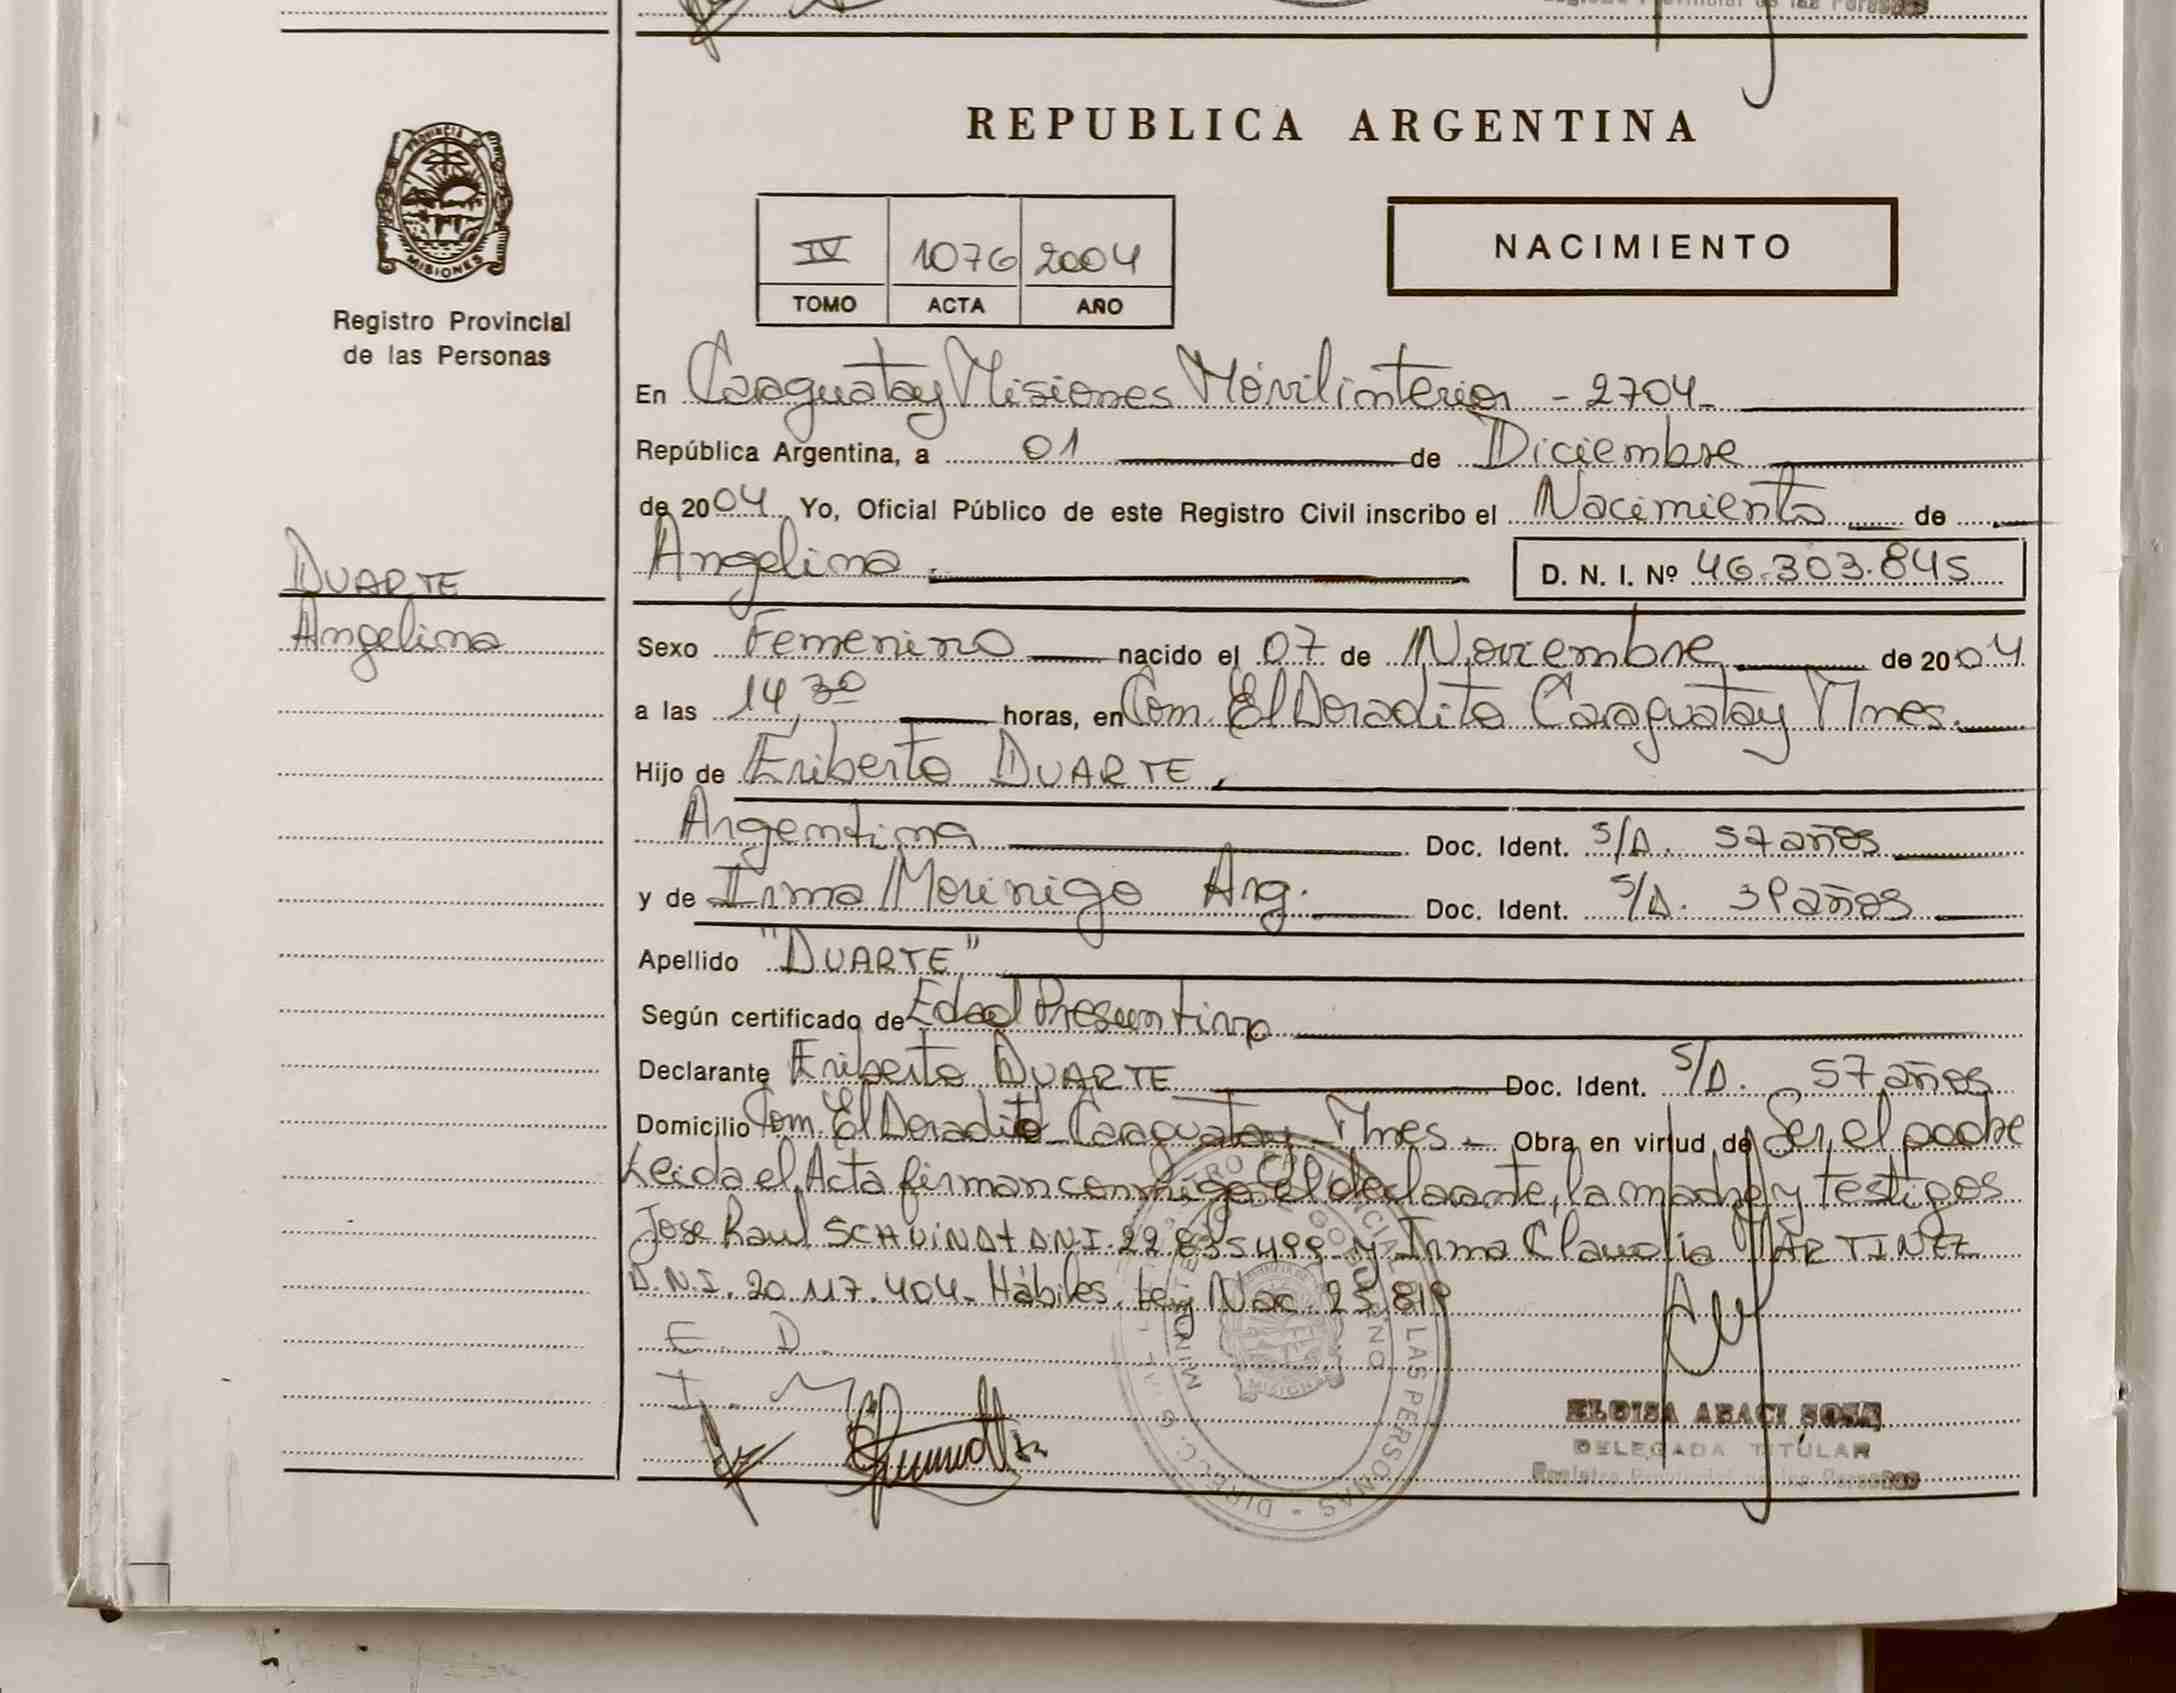 PROVINCIA
MISIONES
Registro Provincial
de las Personas
DUARTE
Angelina
REPUBLICA ARGENTINA
IV 1076 2004
TOMO ACTA AÑO
NACIMIENTO
En Caraguatay Misiones Móvil interior - 2704-
República Argentina, a 01 de Diciembre
de 2004 Yo, Oficial Público de este Registro Civil inscribo el Nacimiento de
Angelina. D. N. I. Nº 46.303.845
Sexo Femenino nacido el 07 de Noviembre de 2004
a las 14,30 horas, en Com. El Doradito Caraguatay Mnes.
Hijo de Eriberto DUARTE,
Argentina Doc. Ident. S/D. 57 años
y de Irma Morinigo Arg. Doc. Ident. S/D. 39 años
Apellido "DUARTE"
Según certificado de Edad Presuntiva
Declarante Eriberto DUARTE Doc. Ident. S/D. 57 años
Domicilio Com. El Doradito Caraguatay - Mnes. - Obra en virtud de Ser el padre
Leida el Acta firman conmigo el declarante, la madre y testigos
Jose Raul DNI. 22.835.499 y Irma Claudia MARTINEZ
D.N.I. 20.117.404. Hábiles. Ley Nac. 25.819
E. D.
I. M
DELEGADA TITULAR
Registro Provincial de las Personas